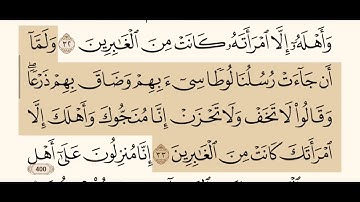 وَأَهْلَهُۥٓ إِلَّا ٱمْرَأَتَهُۥ كَانَتْ مِنَ ٱلْغَٰبِرِينَ ٣٢ وَلَمَّآ
أَن جَآءَتْ رُسُلُنَا لُوطًا سِىٓءَ بِهِمْ وَضَاقَ بِهِمْ ذَرْعًاۖ
وَقَالُوا۟ لَا تَخَفْ وَلَا تَحْزَنْ إِنَّا مُنَجُّوكَ وَأَهْلَكَ إِلَّا
ٱمْرَأَتَكَ كَانَتْ مِنَ ٱلْغَٰبِرِينَ ٣٣ إِنَّا مُنزِلُونَ عَلَىٰٓ أَهْلِ
400